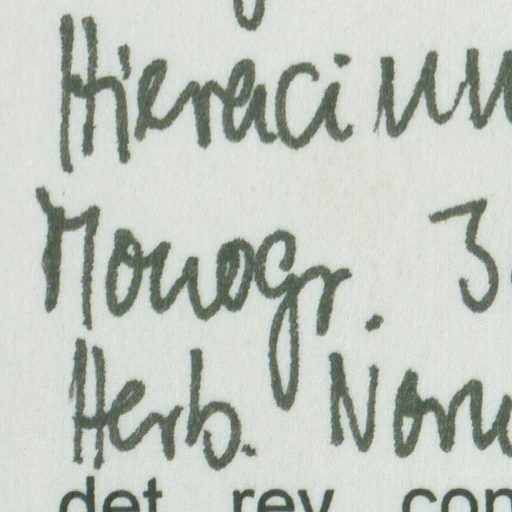 Hieracium
Monogr. 3
Herb. Norm
det rev con